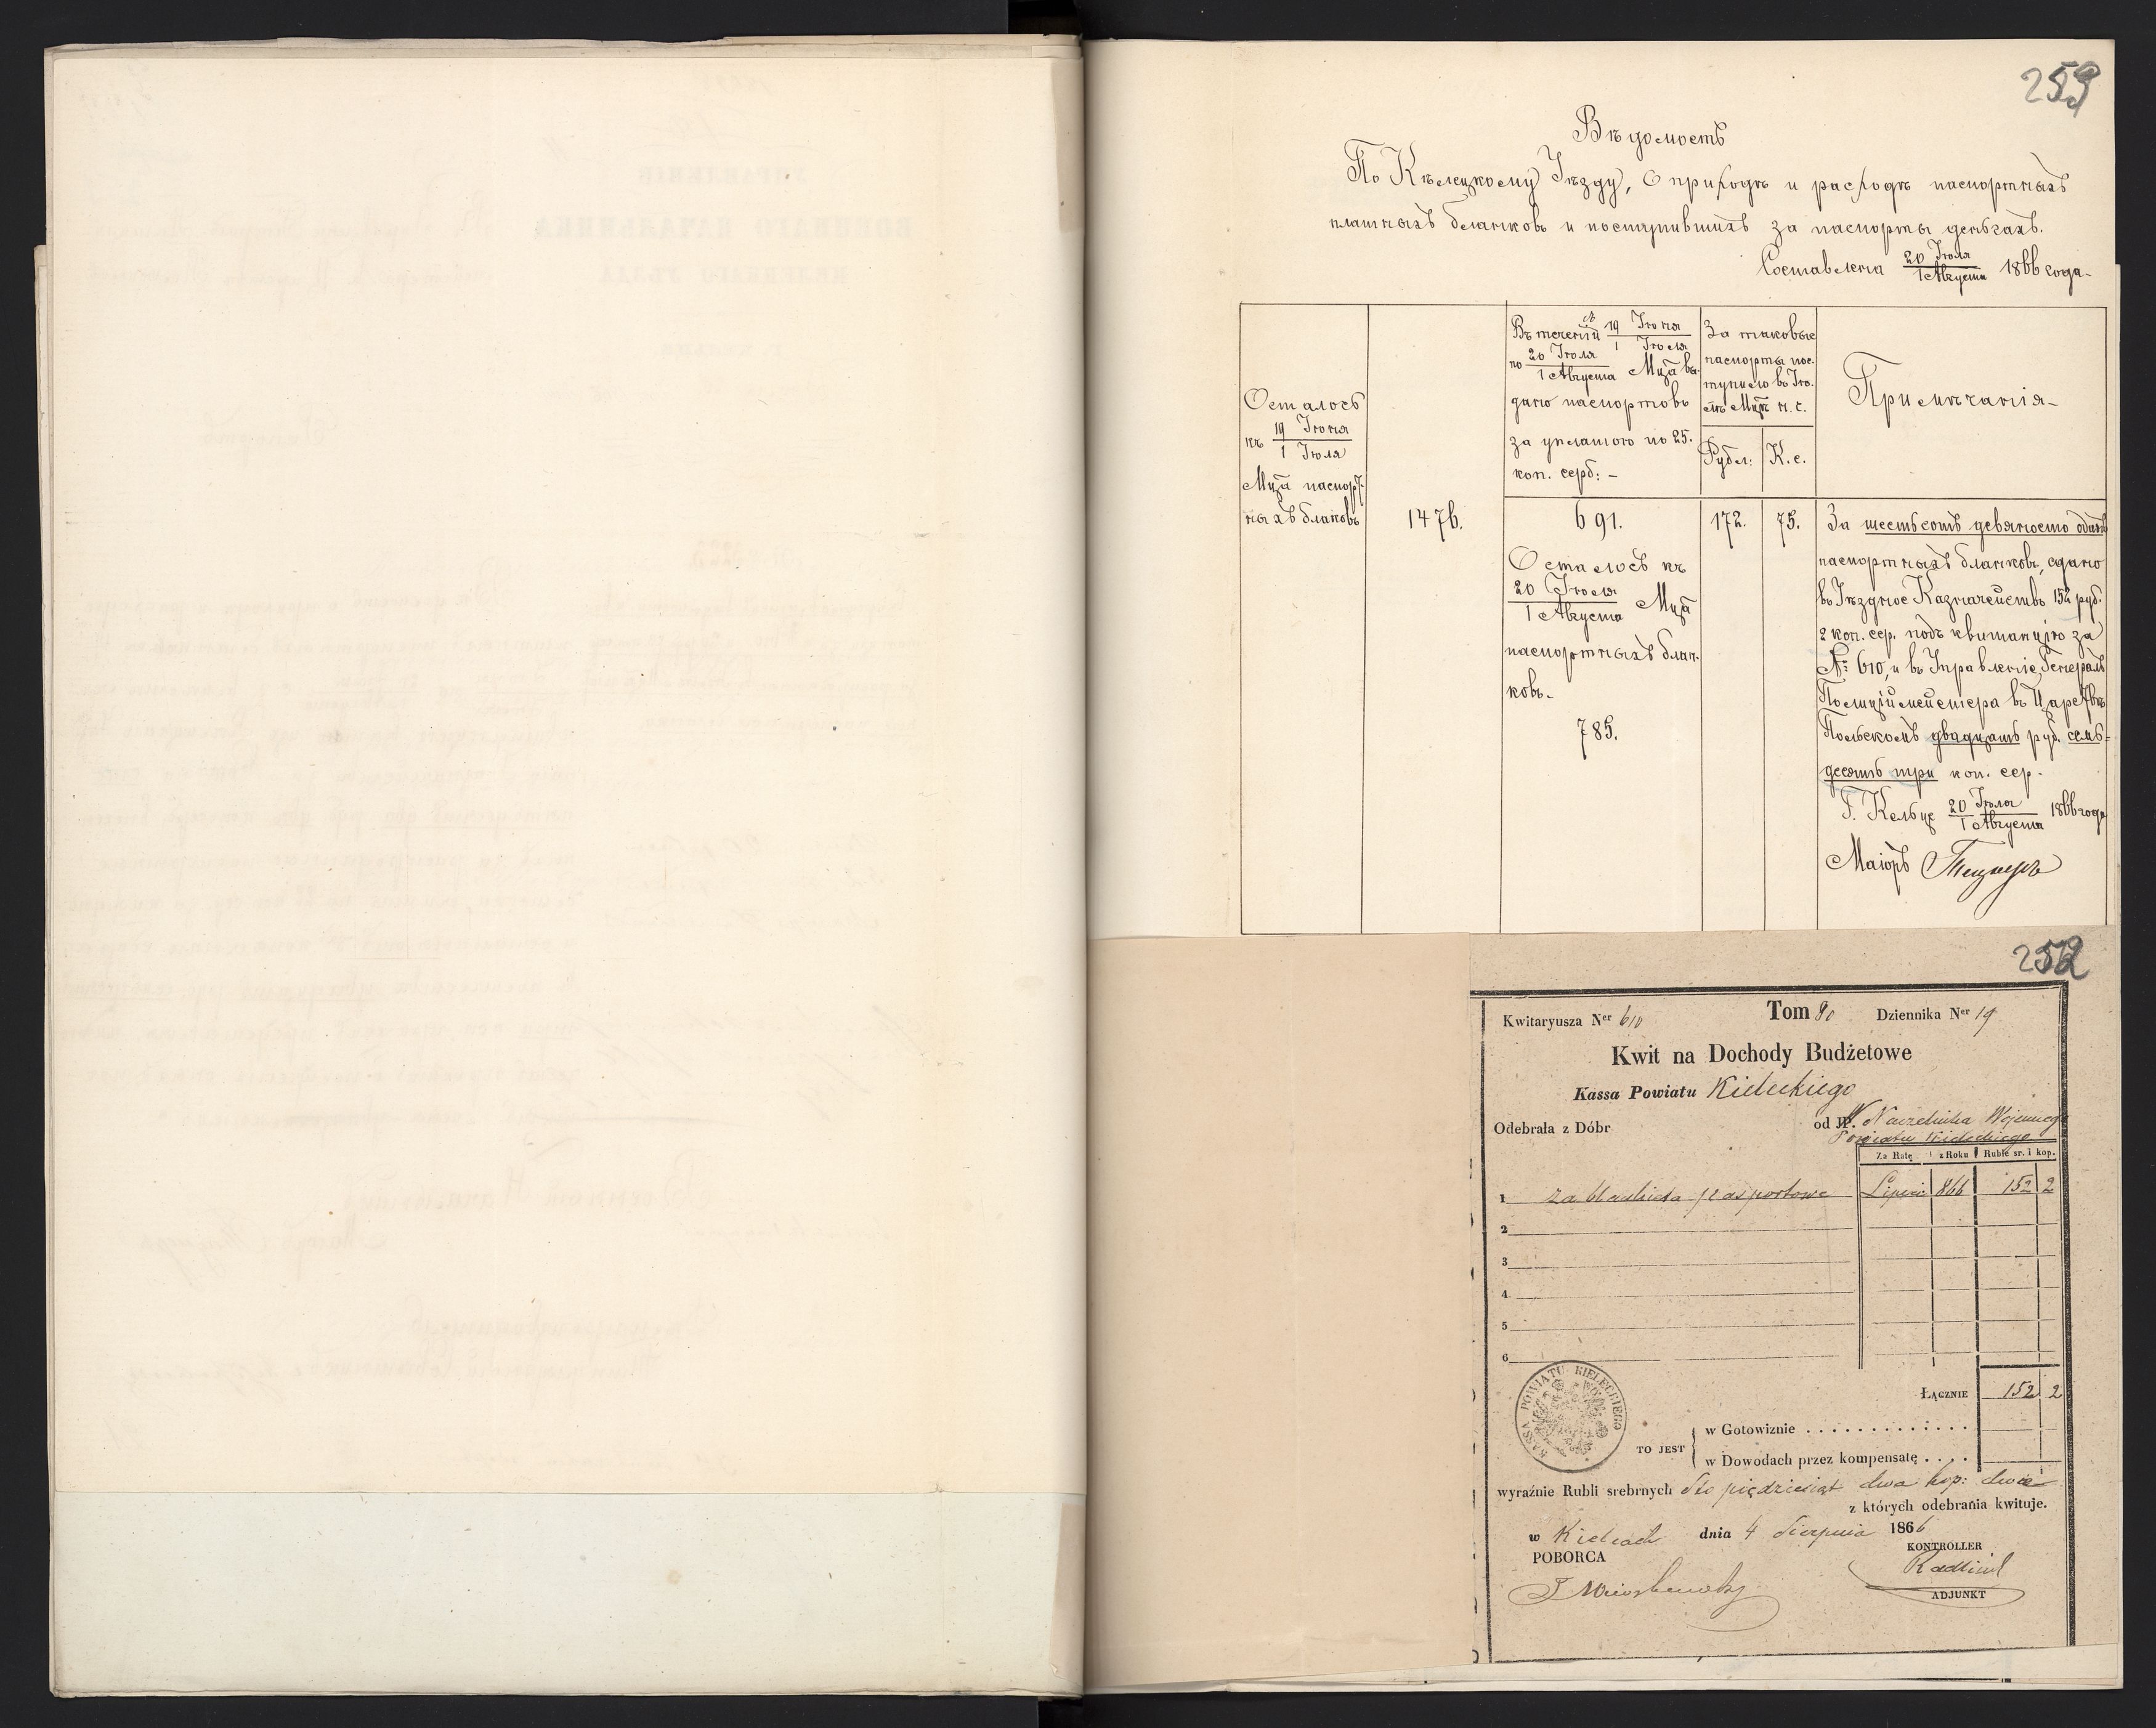 259
Вѣдомость
По Кѣлецкому Уѣзду, О приходѣ и расходѣ паспортныхъ
платныхъ бланковъ и поступившихъ за паспорты деньгахъ.
Составлена 20 Іюля / 1 Августа 1866 года.
Осталось
къ 19 Іюня / 1 Іюля
Мца паспорт-
ныхъ бланковъ
1476.
Въ теченіи съ 19 Іюня / 1 Іюля
по 20 Іюля / 1 Августа Мца вы-
дано паспортовъ
за уплатою по 25.
коп. серб: -
За таковые
паспорты пос-
тупило въ Ію-
лѣ Мцѣ с. г.
Рубл: К. с.
Примѣчанія-
691.
172. 75.
Осталось къ
20 Іюля / 1 Августа Мца
паспортныхъ блан-
ковъ.
785.
За шестьсотъ девяносто одинъ
паспортныхъ бланковъ, сдано
въ Уѣздное Казначейство 152 руб.
2 коп. сер. подъ квитанцію за
№ 610, и въ Управленіе Генералъ
Полиціймейстера въ Царствѣ
Польскомъ двадцать руб. семь-
десятъ три коп. сер.
Г. Кельце 20 Іюля / 1 Августа 1866 года
Маіоръ
252
Kwitaryusza Ner 610 Tom 80 Dziennika Ner 19
Kwit na Dochody Budżetowe
Kassa Powiatu Kieleckiego
Odebrała z Dóbr od W. Naczelnika Wojennego
Powiatu Kieleckiego
Za Ratę z Roku Ruble sr. i kop.
1 za blankieta paszportowe Lipiec 866 152 2
2
3
4
5
6
KASSA POWIATU KIELECKIEGO
ŁĄCZNIE 152 2
TO JEST
w Gotowiznie . . . . . . . . . . . . .
w Dowodach przez kompensatę . . . .
wyraźnie Rubli srebrnych Sto pięćdziesiąt dwa kop: dwie
z których odebrania kwituje.
w Kielcach dnia 4 Sierpnia 1866
POBORCA KONTROLLER
ADJUNKT